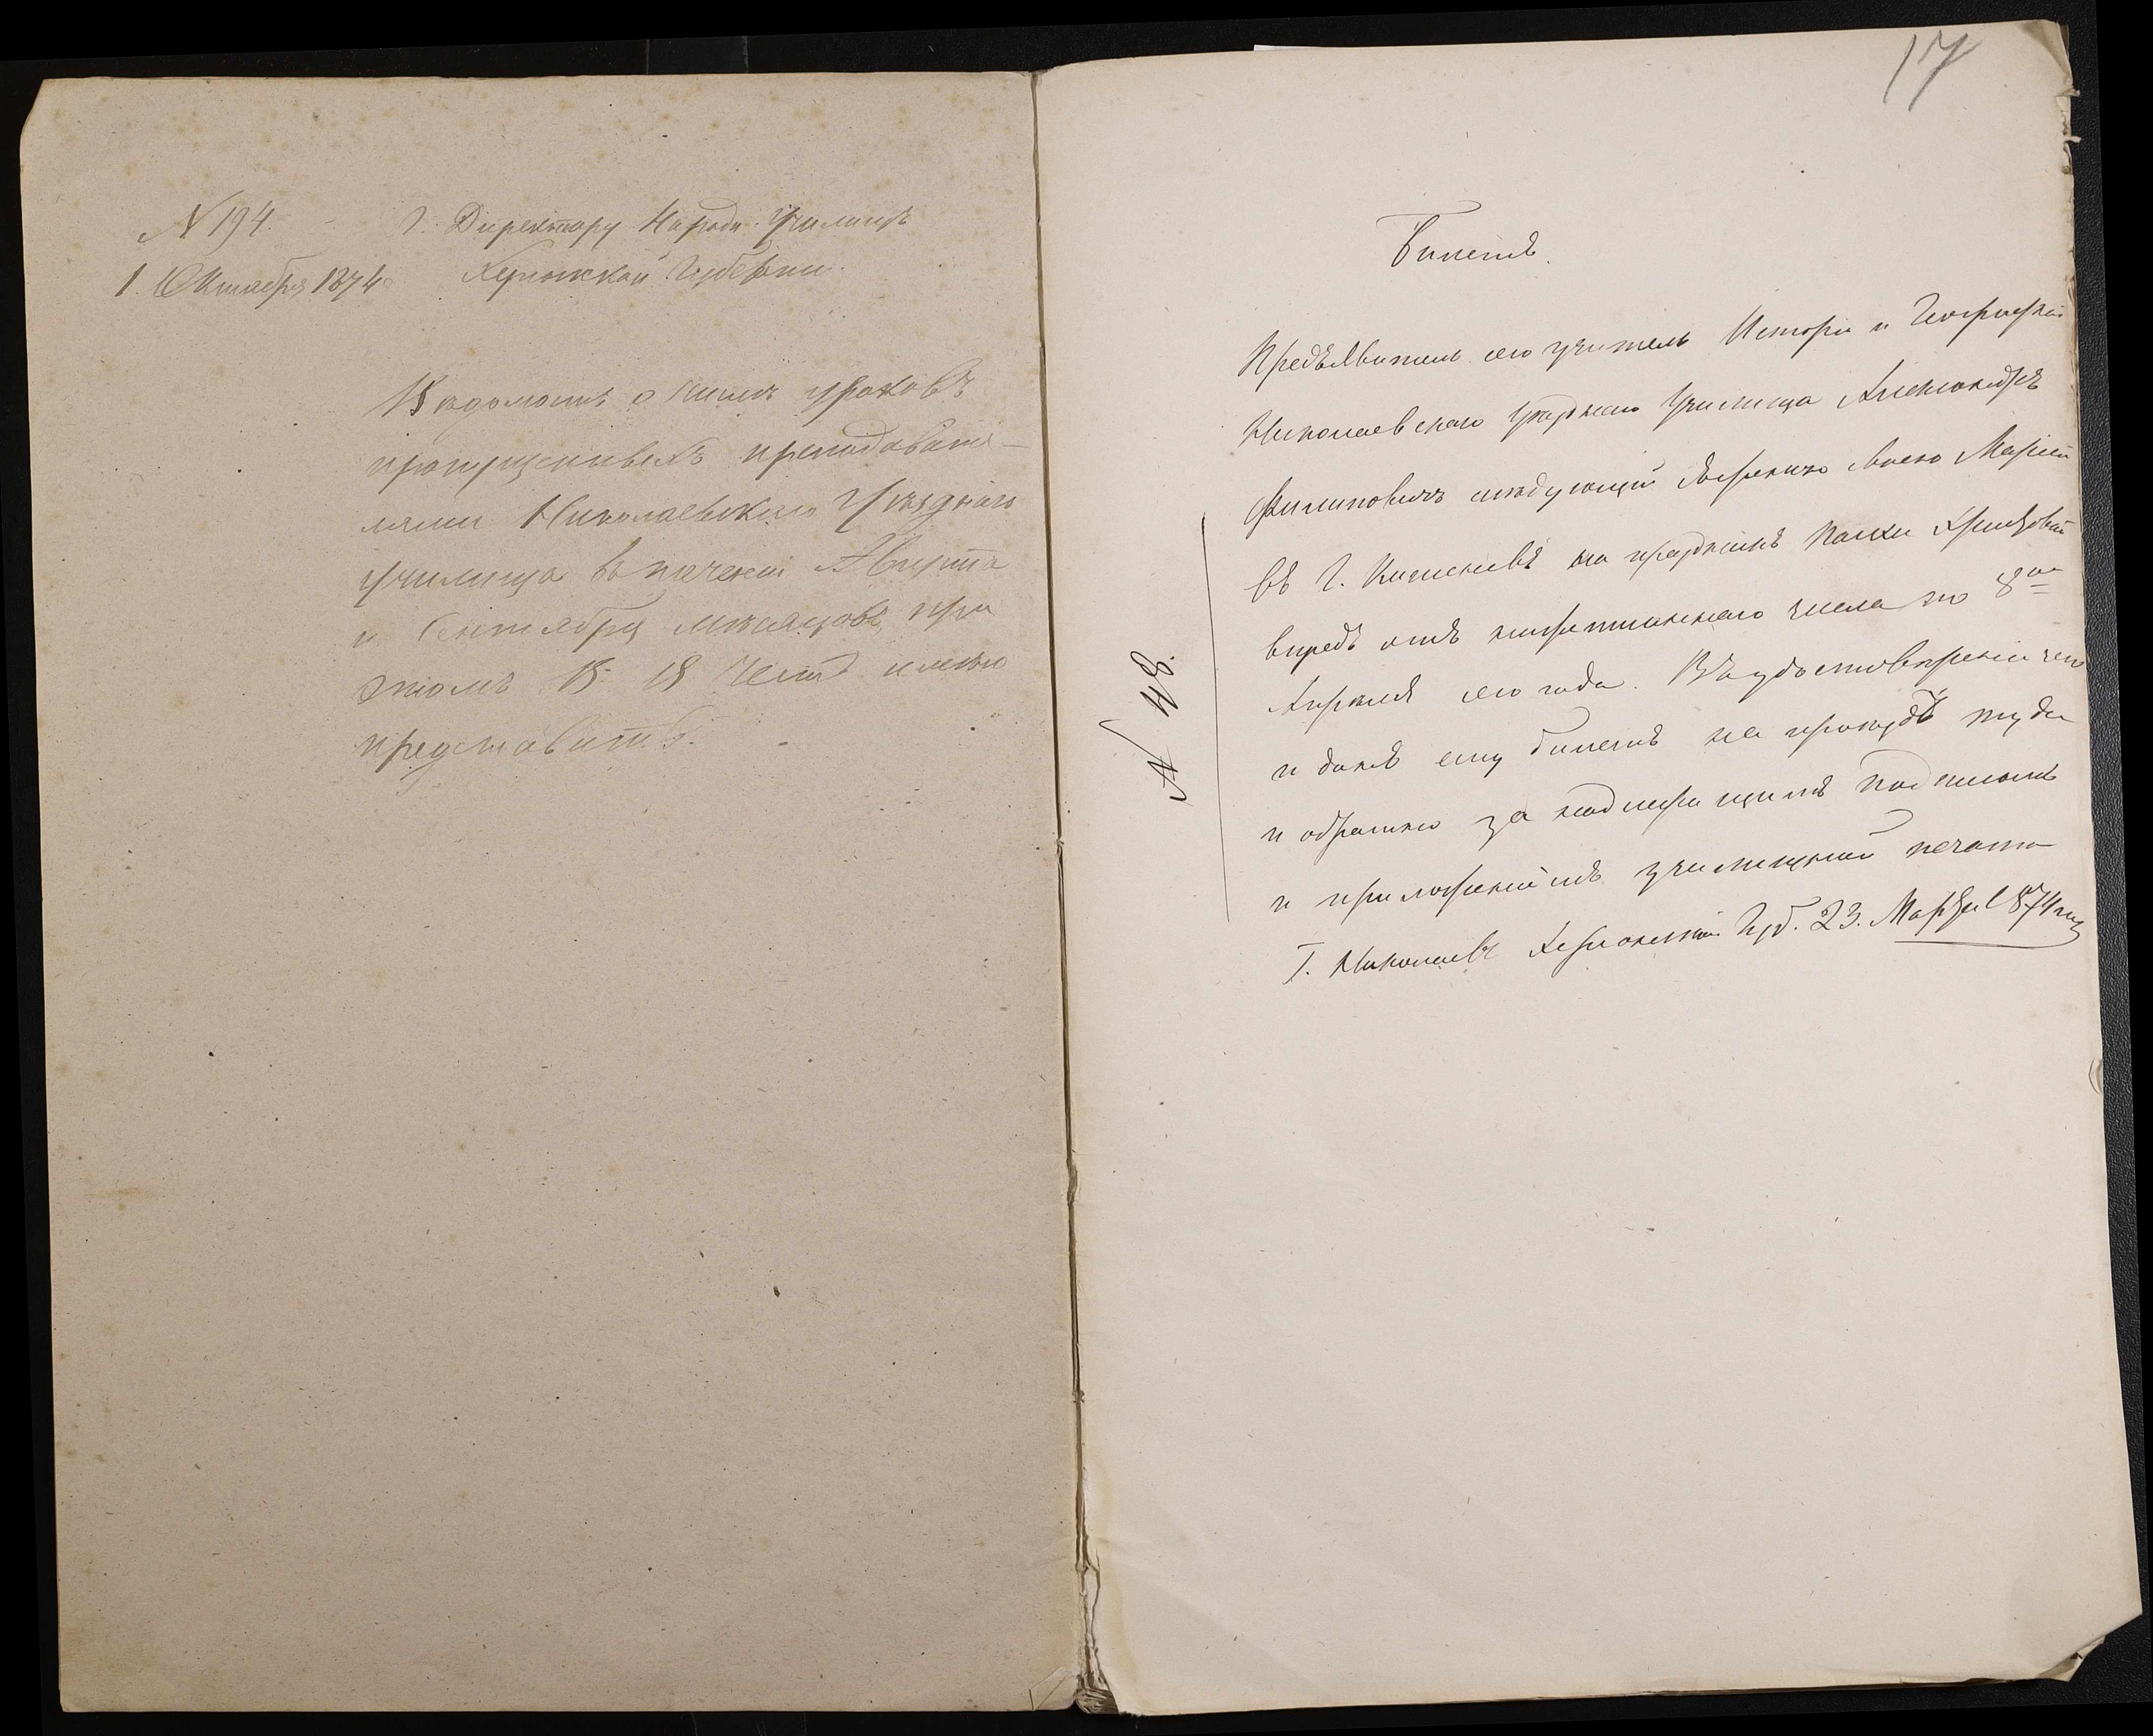 N 194.
1. Октября 1874
Г. Директору Народн. Училищъ
Херсонской Губерніи.
Вѣдомость о числѣ уроковъ
пропущенныхъ преподавате-
лями Николаевскаго Уѣзднаго
училища въ теченіи Августа
и Сентября мѣсяцовъ при
этомъ В. В. честь имѣю
представить.
17
Билетъ.
Предъявитель сего учитель Исторіи и Географіи
Николаевскаго Уѣзднаго Училища Александръ
Филиповичъ слѣдующій женою Маріей
въ Г. Кишеневъ на праздникъ Пасхи Христовой
впредь отъ нижеписаннаго числа по 8ое
Апрѣля сего года. Въ удостовѣреніи чего
и данъ ему билетъ на проѣздъ туда
и обратно за надлежащимъ подписомъ
и приложеніемъ училищной печати
Г. Николаевъ Херсонской Губ. 23. Марта 1874 года
N 48.